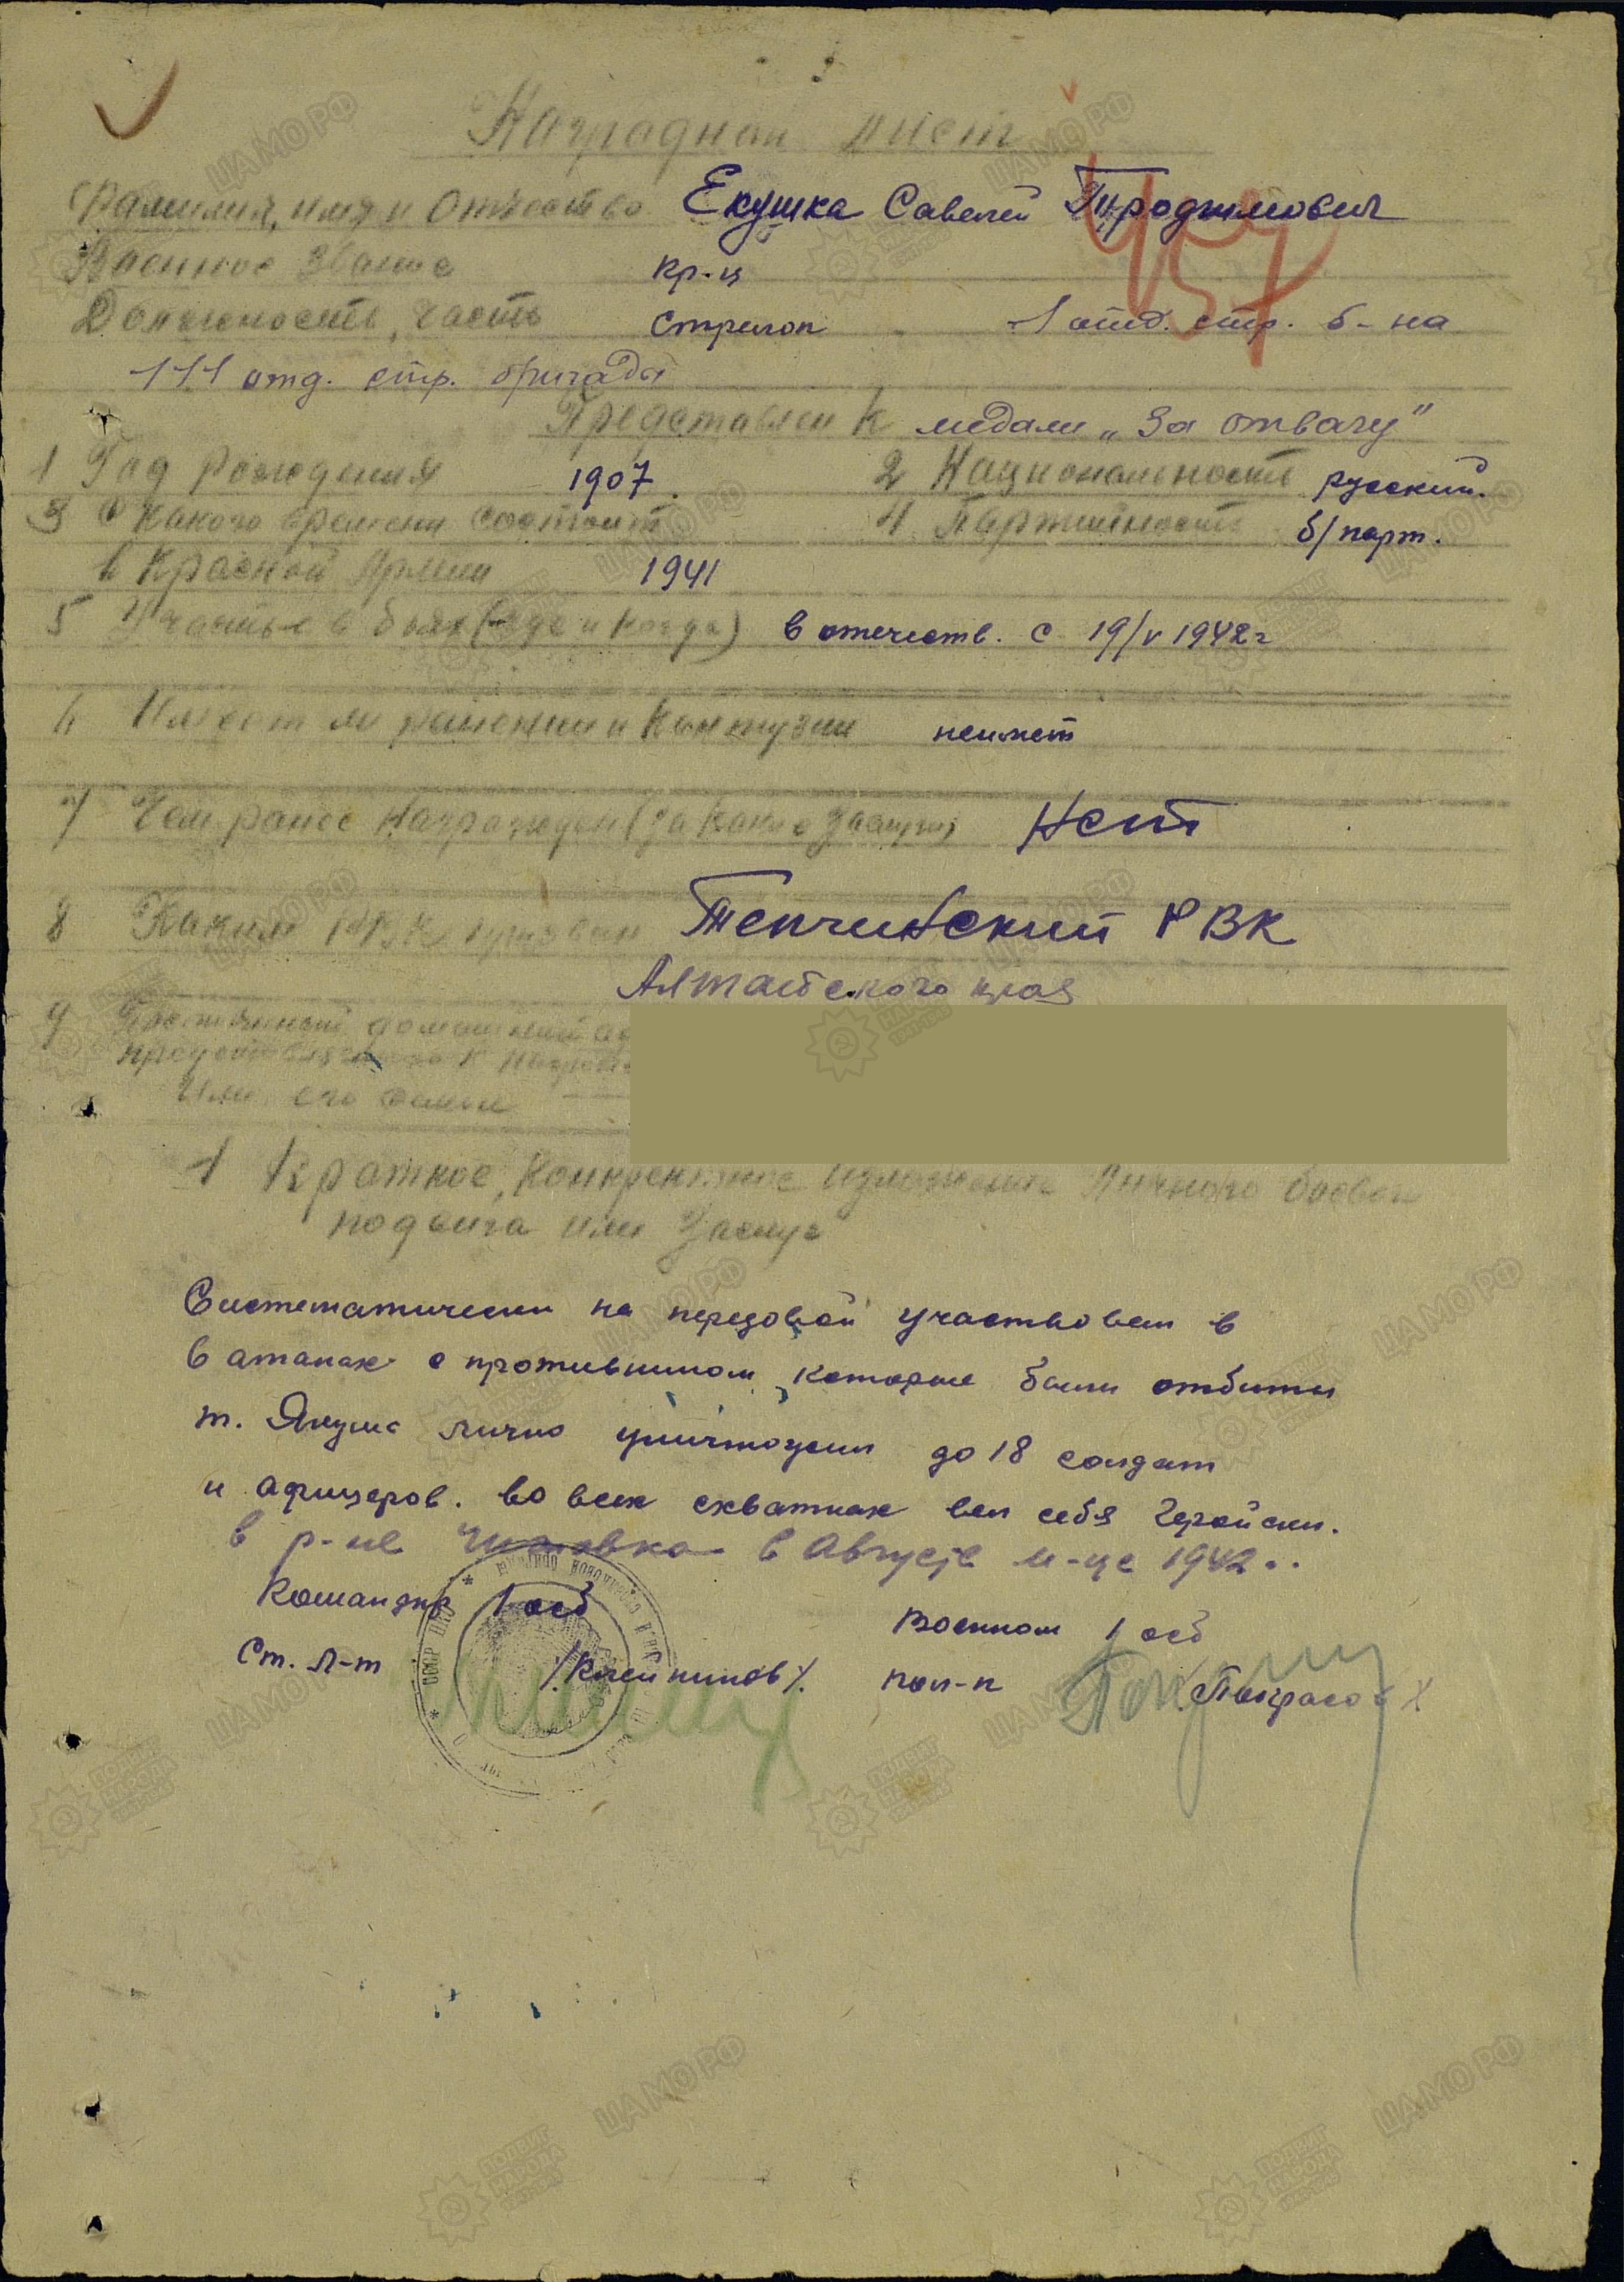 Наградной лист
Фамилия, имя и Отчество Екушка Савелий
Военное звание кр-ц
Должность, часть Стрелок 1 отд. стр. б-на
111 отд. стр. бригады
Представлен к медали „За отвагу"
1 Год рождения 1907. 2 Национальность русский.
3 С какого времени состоит 4 Партийность б/парт.
в Красной Армии 1941
5 Участье в боях (где и когда) в отечеств. с 19/V 1942г
6 Имеет ли ранения и контузии неимет
7 Чем ранее награжден (за какие заслуги) Нет
8 Каким РВК призван РВК
Алтайского края
9 Постоянный домашний ад
представляемого к награде
или его семьи
1 Краткое, конкретное изложение личного боевого
подвига или заслуг
Систематически на передовой участвовал в
в атаках с противником, которые были отбиты
т. Якушка лично уничтожил до 18 солдат
и афицеров. во всех схватках вел себя геройски.
в р-не в Августе м-це 1942г.
Командир 1 осб Военком 1 осб
Ст. Л-т /Клейников/. пол-к
457